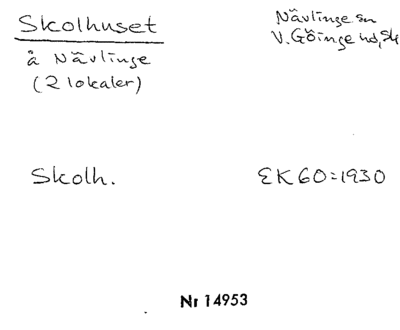 Skolhuset
å Nävlinge
(2 lokaler)
Nävlinge sn
V. Göinge hd, Sk
Skolh.
EK 60:1930
Nr 14953